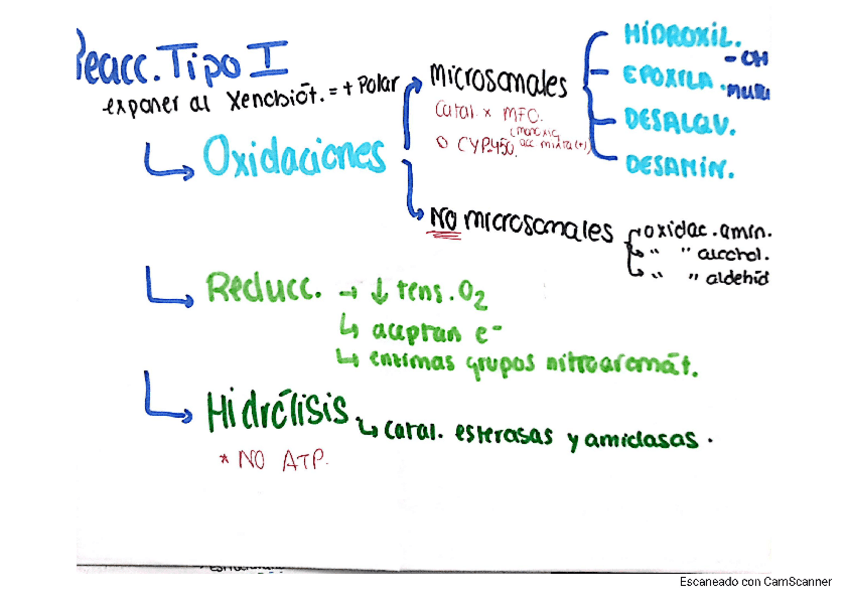 Reacc. Tipo I
exponer al xenobiót. = + Polar
Oxidaciones
Microsomales
Catal. x MFO.
O CYP450.
HIDROXIL.
- OH
EPOXILA
DESALQU.
DESAMIN.
NO microsomales
oxidac. amin.
" " alcohol.
" " aldehid
Reducc. → ↓ tens. O2
↳ aceptan e-
↳ enzimas grupos nitroaromát.
Hidrólisis
↳ Catal. esterasas y amidasas.
* NO ATP.
Escaneado con CamScanner